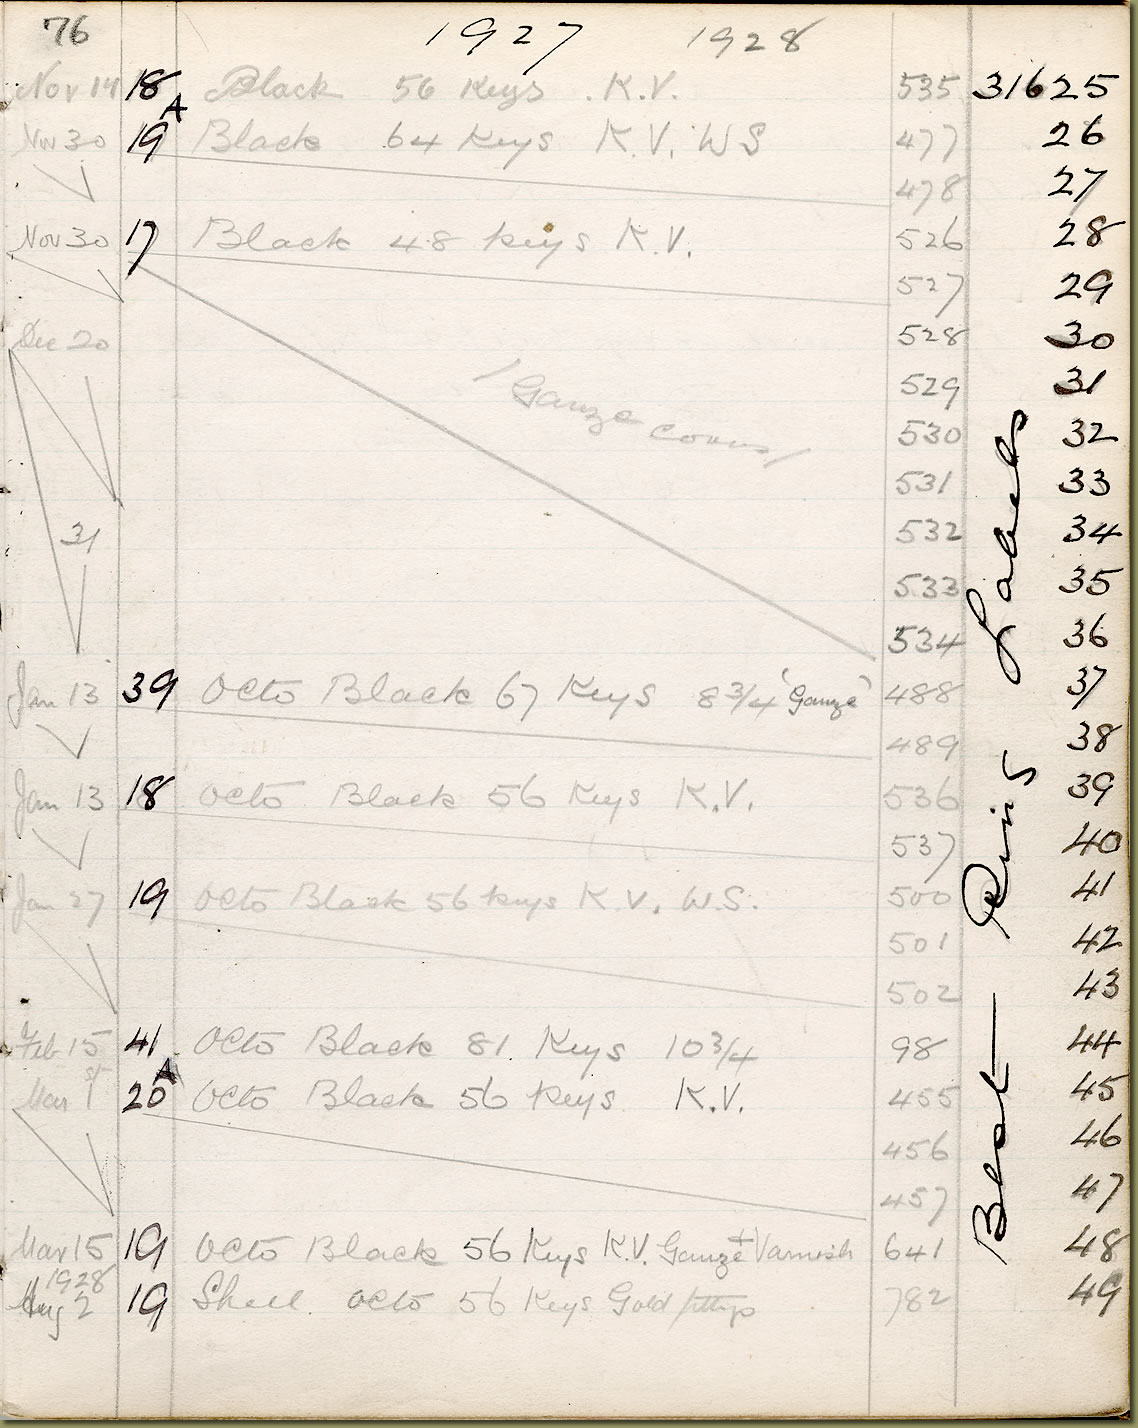 76 1927 1928
Nov 14 18 Black 56 Keys . K.V. 535 31625
Nov 30 19 A Black 64 Keys K.V. WS 477 26
478 27
Nov 30 17 Black 48 Keys K.V. 526 28
527 29
Dec 20 528 30
529 31
Gauze 530 32
531 33
31 532 34
533 35
534 36
Jan 13 39 Octo Black 67 Keys 8 3/4 'Gauze' 488 37
489 38
Jan 13 18 Octo Black 56 Keys K.V. 536 39
537 40
Jan 27 19 Octo Black 56 Keys K.V. W.S. 500 41
501 42
502 43
Feb 15 41 Octo Black 81 Keys 10 3/4 98 44
Mar 1st 20 A Octo Black 56 Keys K.V. 455 45
456 46
457 47
Mar 15 19 Octo Black 56 Keys K.V. Gauze + Varnish 641 48
1928
Aug 2 19 Shell Octo 56 Keys Gold fittgs 782 49
Best Rims Labels